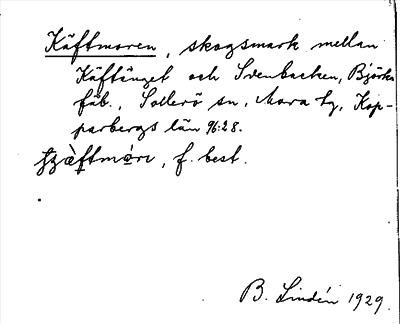 Käftmoren, skogsmark mellan
Käftänget och Svenbacken, Björka
fäb., Sollerö sn, Mora tg, Kop-
parbergs län 96:28.
f. best.
B. Lindén 1929.